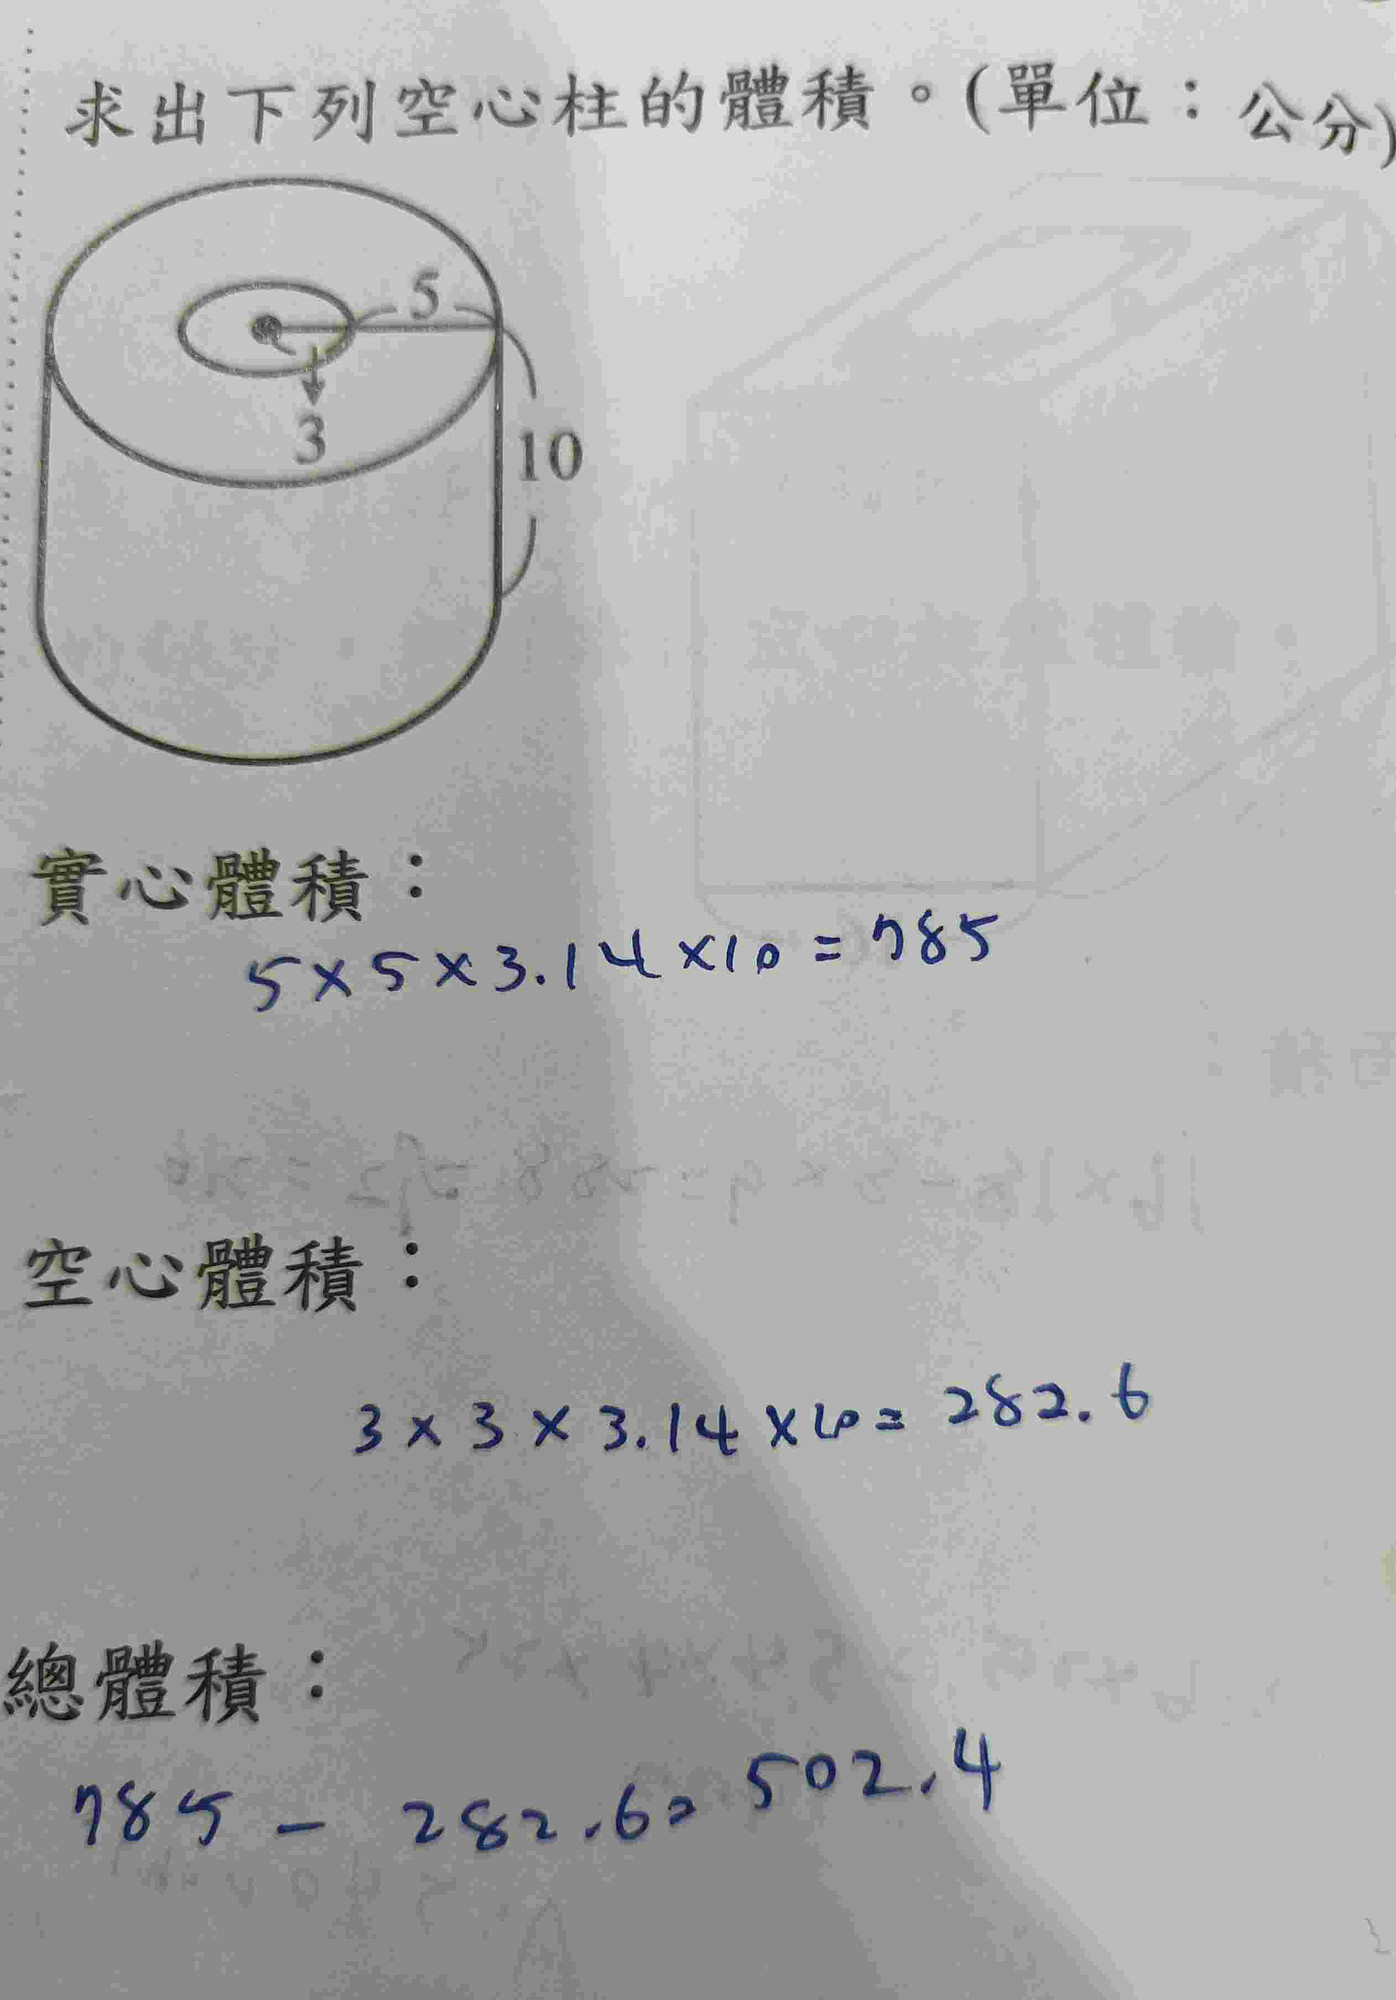 求出下列空心柱的體積。(單位：公分)
5
3
10
實心體積：
5×5×3.14×10=785
空心體積：
3×3×3.14×10=282.6
總體積：
785-282.6=502.4